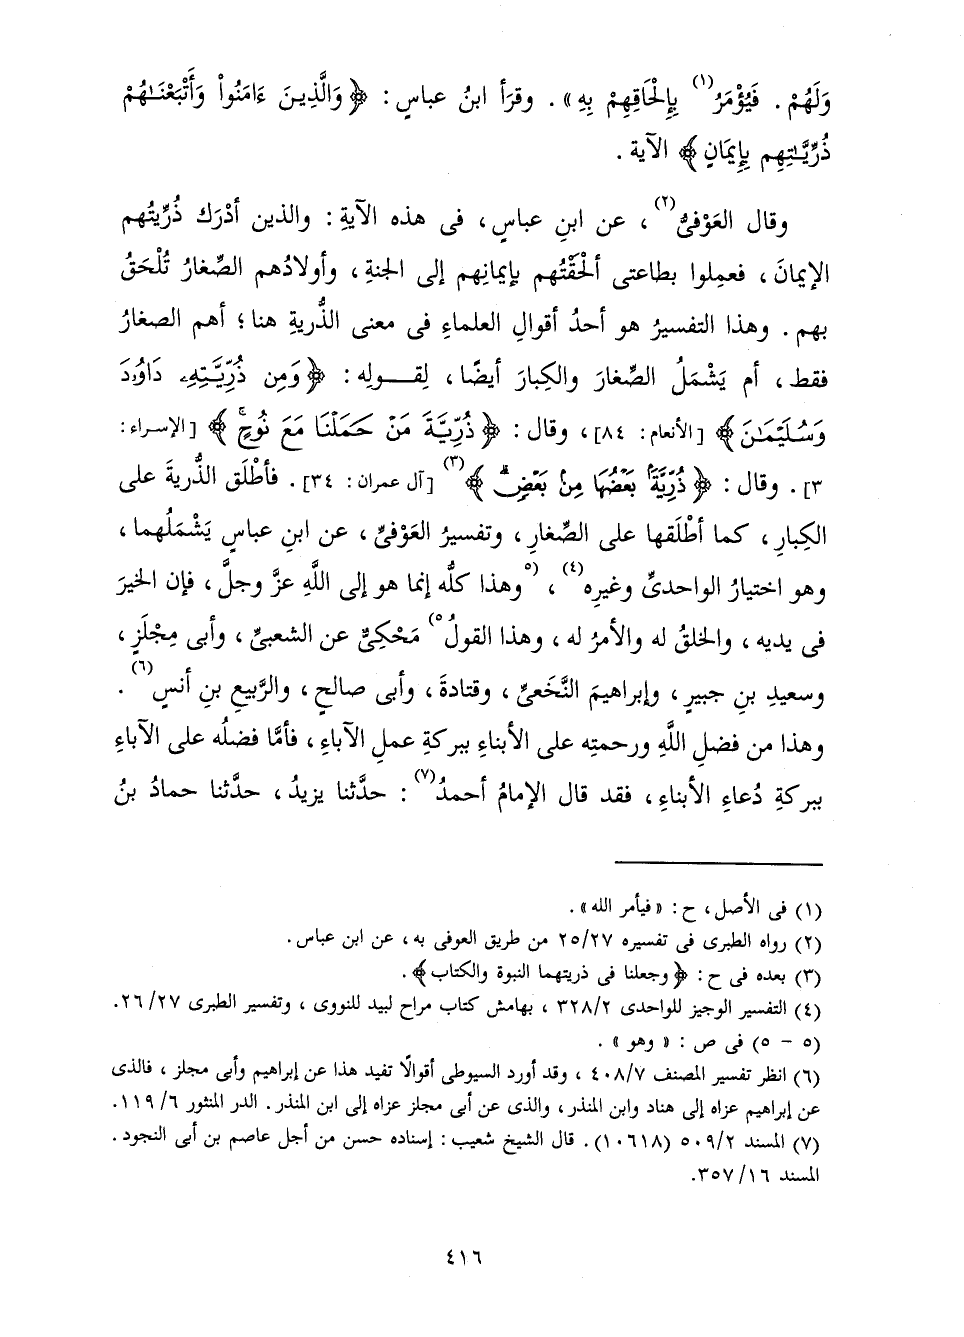 وَلَهُمْ . فَيُؤْمَرُ(١) بِإِلْحَاقِهِمْ بِهِ » . وقرَأ ابنُ عباسٍ : ﴿ وَالَّذِينَ ءَامَنُواْ وَأَتْبَعْنَـٰهُمْ
ذُرِّيَّـٰتِهِم بِإِيمَانٍ ﴾ الآية .
وقال العَوْفىُّ(٢) ، عن ابنِ عباسٍ ، فى هذه الآيةِ : والذين أدْرَك ذُرِّيتُهم
الإيمانَ ، فعمِلوا بطاعتى ألْحَقْتُهم بإيمانِهم إلى الجنةِ ، وأولادُهم الصِّغارُ تُلْحَقُ
بهم . وهذا التفسيرُ هو أحدُ أقوالِ العلماءِ فى معنى الذُّريةِ هنا ؛ أهم الصغارُ
فقط ، أم يَشْمَلُ الصِّغارَ والكِبارَ أيضًا ، لِقــولِه : ﴿ وَمِن ذُرِّيَّـتِهِۦ دَاوُۥدَ
وَسُلَيْمَـٰنَ ﴾ [الأنعام: ٨٤] ، وقال : ﴿ ذُرِّيَّةَ مَنْ حَمَلْنَا مَعَ نُوحٍۚ ﴾ [الإسراء:
٣] . وقال : ﴿ ذُرِّيَّةًۢ بَعْضُهَا مِنۢ بَعْضٍۗ ﴾(٣) [آل عمران: ٣٤] . فأطْلَق الذُّريةَ على
الكِبارِ ، كما أطْلَقها على الصِّغارِ ، وتفسيرُ العَوْفىِّ ، عن ابنِ عباسٍ يَشْمَلُهما ،
وهو اختيارُ الواحدىِّ وغيرِه(٤) ، (٥ وهذا كلُّه إنما هو إلى اللَّهِ عزَّ وجلَّ ، فإن الخيرَ
فى يديه ، والخلقُ له والأمرُ له ، وهذا القولُ ٥) مَحْكِىٌّ عن الشعبىِّ ، وأبى مِجْلَزٍ ،
وسعيدِ بنِ جبيرٍ ، وإبراهيمَ النَّخَعىِّ ، وقتادةَ ، وأبى صالحٍ ، والرَّبيعِ بنِ أنسٍ(٦) .
وهذا من فضلِ اللَّهِ ورحمتِه على الأبناءِ ببركةِ عملِ الآباءِ ، فأمَّا فضلُه على الآباءِ
ببركةِ دُعاءِ الأبناءِ ، فقد قال الإمامُ أحمدُ(٧) : حدَّثنا يزيدُ ، حدَّثنا حمادُ بنُ
(١) فى الأصل ، ح : « فيأمر الله » .
(٢) رواه الطبرى فى تفسيره ٢٥/٢٧ من طريق العوفى به ، عن ابن عباس .
(٣) بعده فى ح : ﴿ وجعلنا فى ذريتهما النبوة والكتاب ﴾ .
(٤) التفسير الوجيز للواحدى ٣٢٨/٢ ، بهامش كتاب مراح لبيد للنووى ، وتفسير الطبرى ٢٦/٢٧ .
(٥ - ٥) فى ص : « وهو » .
(٦) انظر تفسير المصنف ٤٠٨/٧ ، وقد أورد السيوطى أقوالًا تفيد هذا عن إبراهيم وأبى مجلز ، فالذى
عن إبراهيم عزاه إلى هناد وابن المنذر ، والذى عن أبى مجلز عزاه إلى ابن المنذر . الدر المنثور ١١٩/٦ .
(٧) المسند ٥٠٩/٢ (١٠٦١٨) . قال الشيخ شعيب : إسناده حسن من أجل عاصم بن أبى النجود .
المسند ٣٥٧/١٦ .
٤١٦